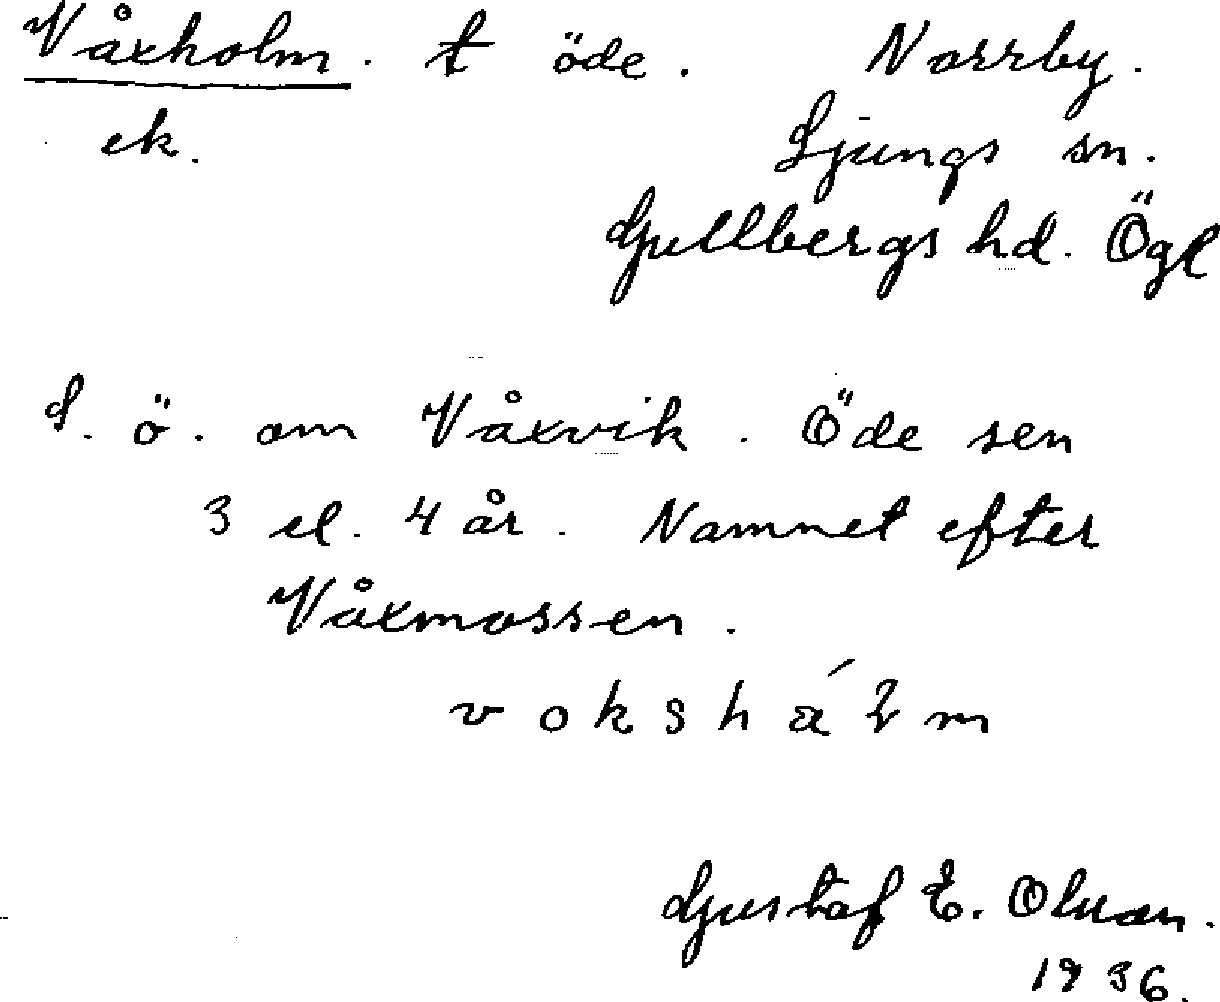 Våxholm. t öde. Norrby.
ek. Ljungs sn.
Gullbergs hd. Ögl
S. ö. om Våxvik. Öde sen
3 el. 4 år. Namnet efter
Våxmossen.
vokshálm
Gustaf E. Olsson.
1936.